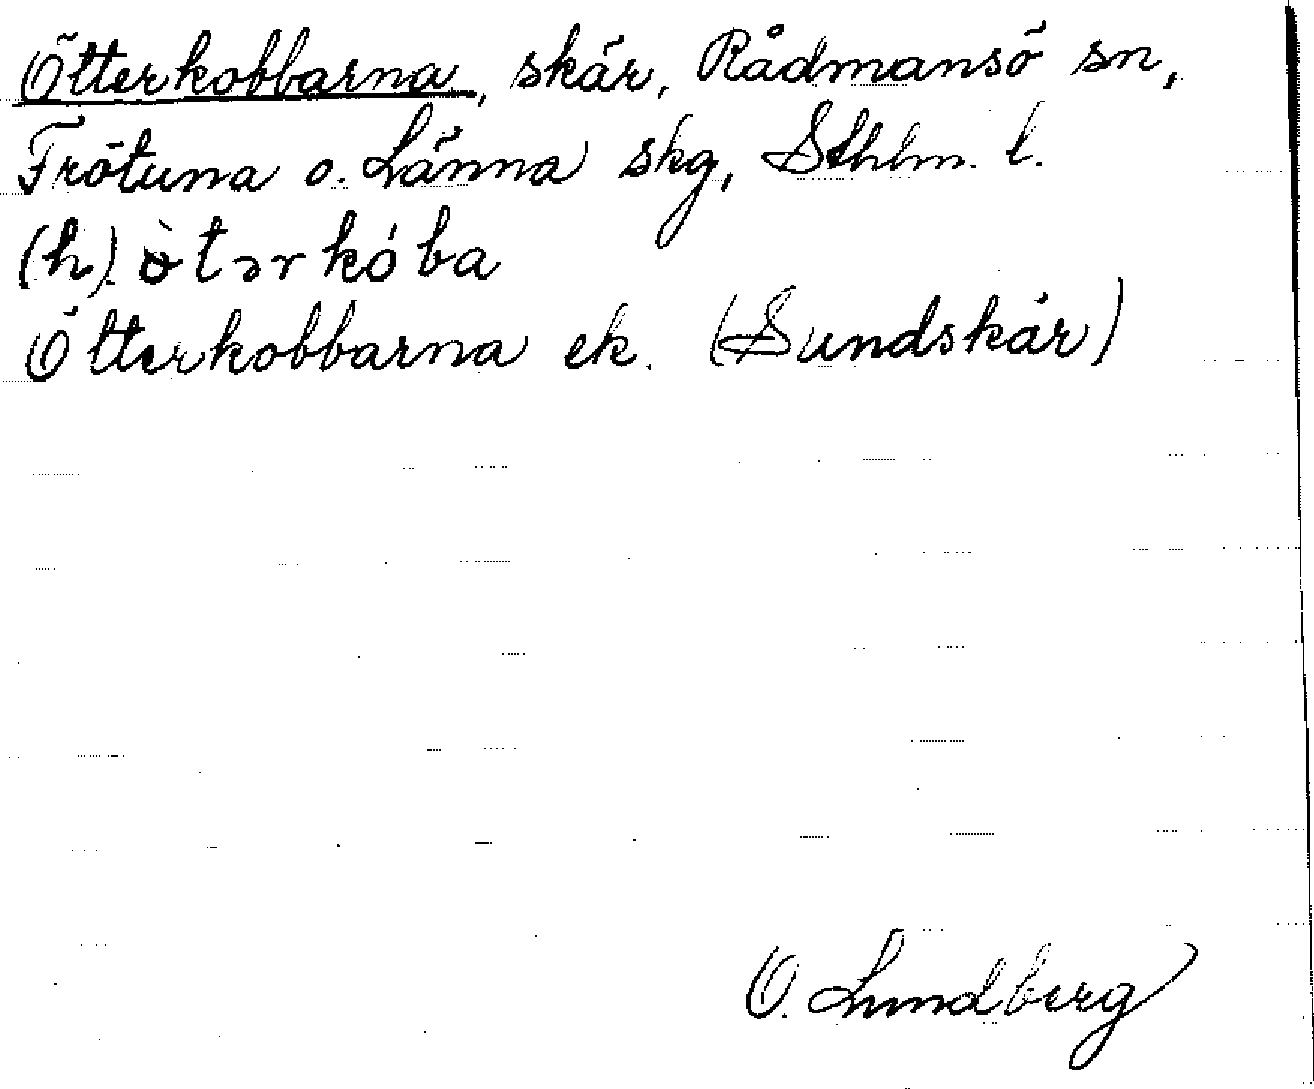 Ötterkobbarna, skär, Rådmansö sn,
Frötuna o. Länna skg, Sthlm. l.
(h) òtərkóba
Ötterkobbarna ek. (Sundskär)
O. Lundberg